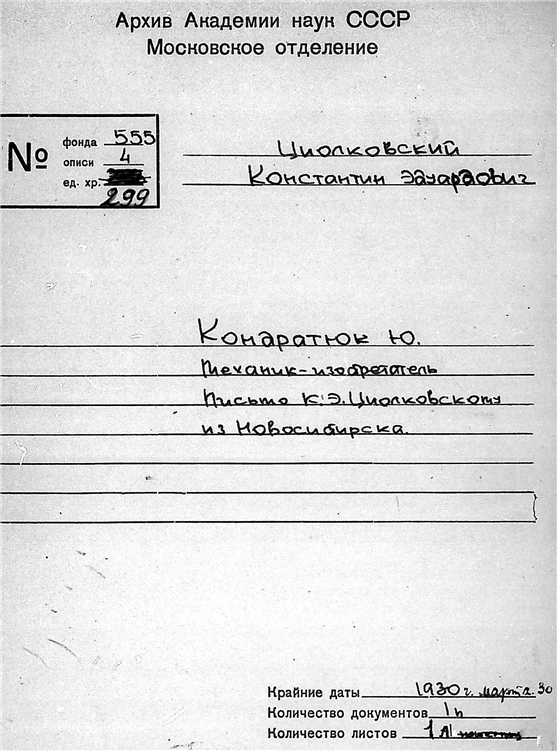 Архив Академии наук СССР
Московское отделение
№
фонда 555
описи 4
ед. хр.
299
Циолковский
Константин Эдуардович
Кондратюк Ю.
Механик-изобретатель
Письмо К.Э.Циолковскому
из Новосибирска.
Крайние даты 1930 г. марта 30
Количество документов 1
Количество листов 1 л